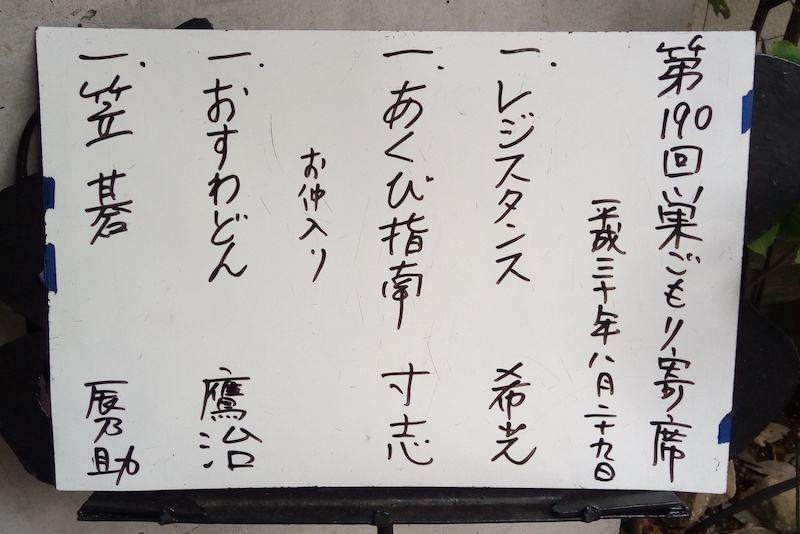 第190回 巣ごもり寄席
平成三十年八月二十九日
一. レジスタンス 希光
一. あくび指南 寸志
お仲入り
一. おすわどん 鷹治
一. 笠碁 辰乃助